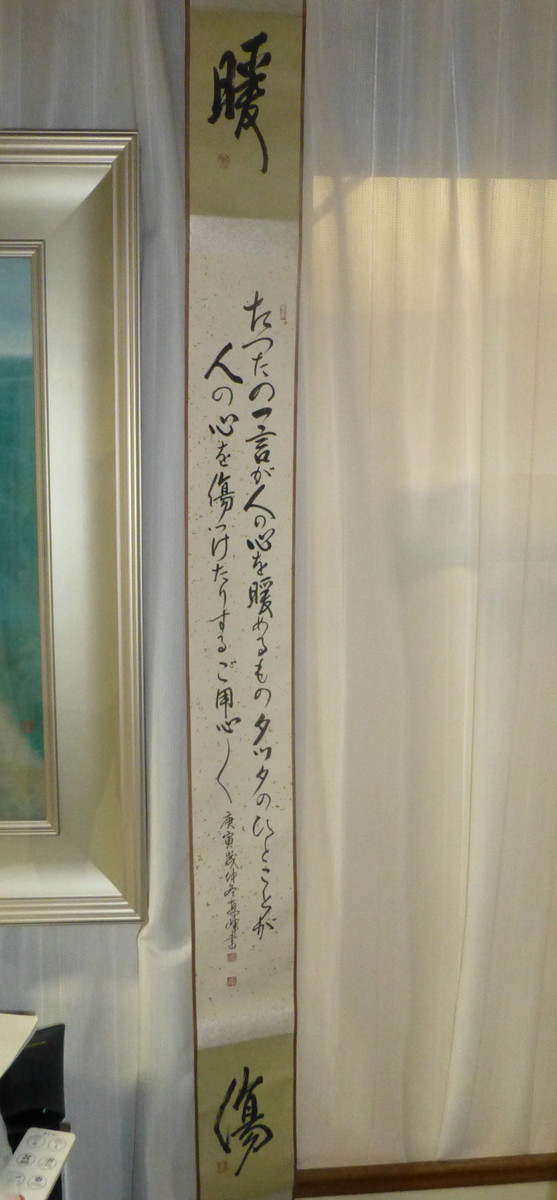 暖
たつたの一言が人の心を暖めるものタッタのひとことが
人の心を傷つけたりするご用心〱
庚寅歳仲冬
書
傷